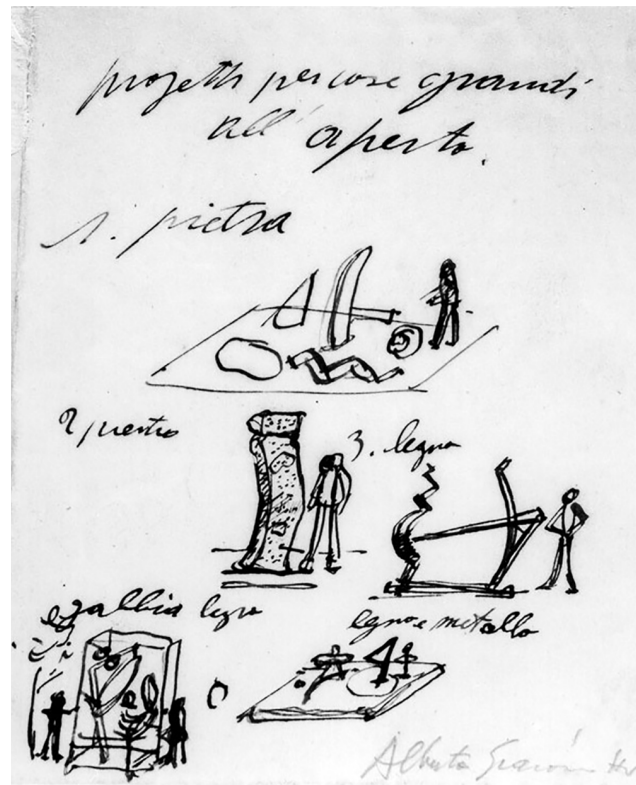 progetti per cose grandi
all'aperto.
1. pietra
2
3. legno
gabbia legno
legno e metallo
Alberto Giacometti